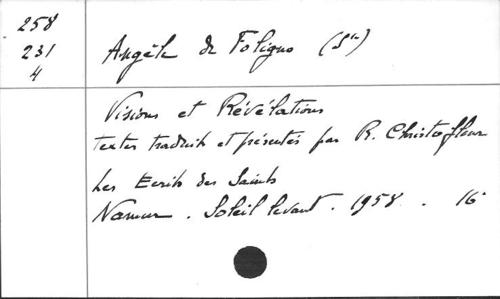 258
231
4
Angèle de Foligno (Ste)
Visions et Révélations
textes traduits et présentés par R. Christoflour
Les Ecrits des Saints
Namur. Soleil levant. 1958. 16°